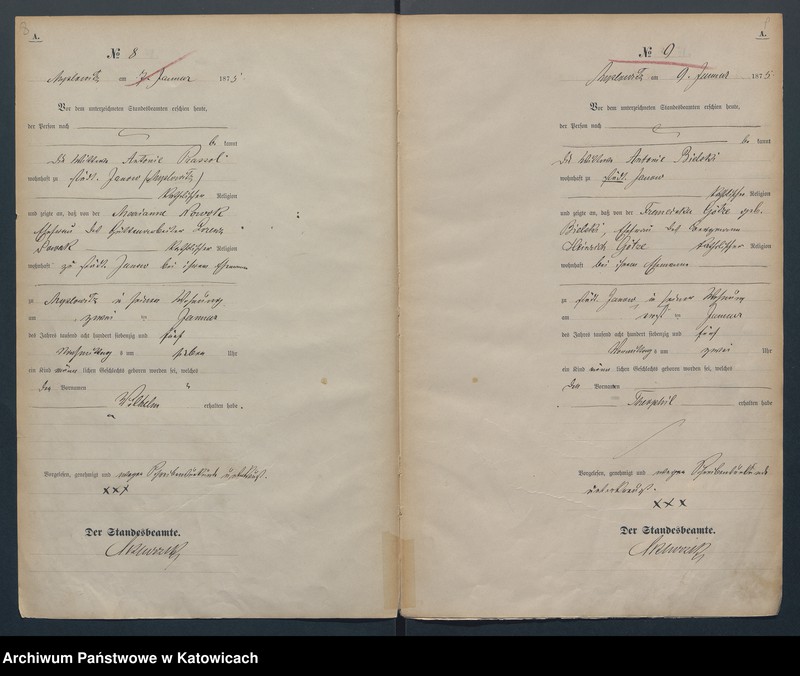 A.
№ 8
Myslowitz am 7. Januar 1875.
Vor dem unterzeichneten Standesbeamten erschien heute,
der Person nach
be kannt
die Wittwe Antonie
wohnhaft zu städt. Janow (Myslowitz)
katholischer Religion
und zeigte an, daß von der Marianne Nowak
Ehefrau des Hüttenarbeiter Lorenz
Nowak katholischer Religion
wohnhaft zu städt. Janow bei ihrem Ehemanne
zu Myslowitz in seiner Wohnung
am zwei ten Januar
des Jahres tausend acht hundert siebenzig und fünf
Nachmittag s um sieben Uhr
ein Kind männ lichen Geschlechts geboren worden sei, welches
den Vornamen
Wilhelm erhalten habe.
Vorgelesen, genehmigt und wegen Schreibensunkunde unterkreuzt.
xxx
Der Standesbeamte.
A.
№ 9
Myslowitz am 9. Januar 1875.
Vor dem unterzeichneten Standesbeamten erschien heute,
der Person nach
be kannt
die Wittwe Antonie Bielski
wohnhaft zu städt. Janow
katholischer Religion
und zeigte an, daß von der Franciska Götze geb.
Bielski, Ehefrau des Bergmann
Heinrich Götze katholischer Religion
wohnhaft bei ihrem Ehemanne
zu städt. Janow in seiner Wohnung
am ten Januar
des Jahres tausend acht hundert siebenzig und fünf
Vormittag s um zwei Uhr
ein Kind männ lichen Geschlechts geboren worden sei, welches
den Vornamen
Theophil erhalten habe
Vorgelesen, genehmigt und wegen Schreibensunkunde
unterkreuzt.
xxx
Der Standesbeamte.
Archiwum Państwowe w Katowicach